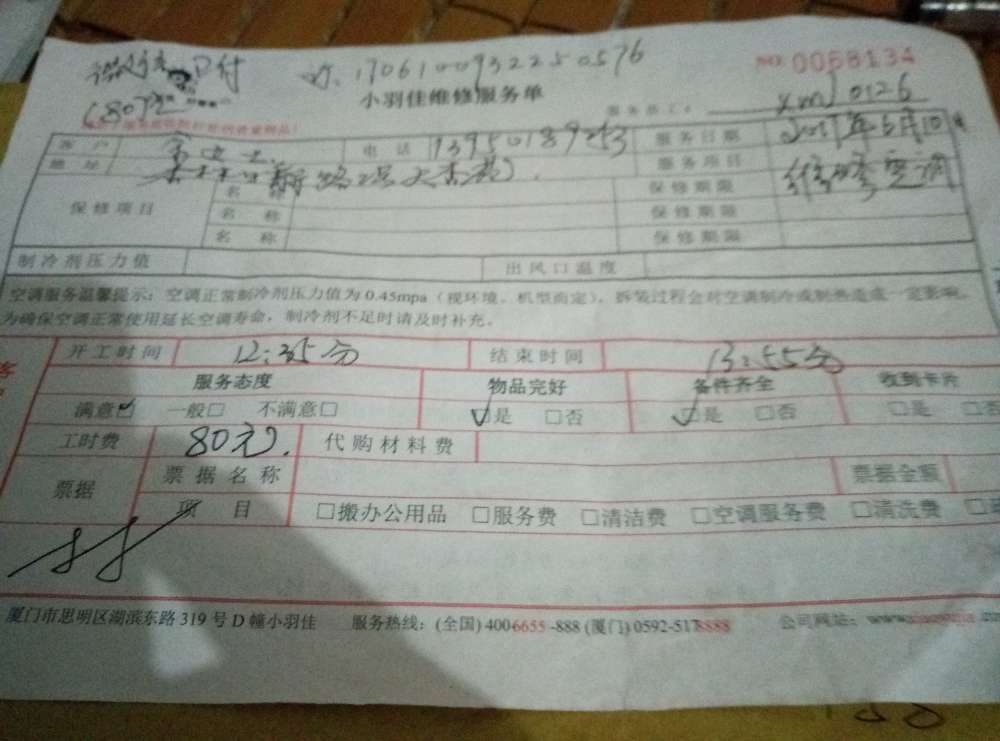 微信 已付 订: 17061009322250576 NO: 0068134
(80)元 小羽佳维修服务单 服务员工: xm10126
客户 电话 服务日期 2017年6月10日
地址 服务项目 维修空调
保修项目 名称 保修期限
名称 保修期限
名称 保修期限
制冷剂压力值 出风口温度
空调服务温馨提示：空调正常制冷剂压力值为0.45mpa（视环境、机型而定），拆装过程会对空调制冷或制热造成一定影响。
为确保空调正常使用延长空调寿命，制冷剂不足时请及时补充。
开工时间 12:35分 结束时间 13:55分
服务态度 物品完好 备件齐全 收到卡片
满意☑ 一般□ 不满意□ ☑是 □否 ☑是 □否 □是 □否
工时费 80元. 代购材料费
票据 票据名称 票据金额
项目 □搬办公用品 □服务费 □清洁费 □空调服务费 □清洗费
厦门市思明区湖滨东路319号D幢小羽佳 服务热线：(全国) 4006655-888 (厦门) 0592-5178888 公司网站：